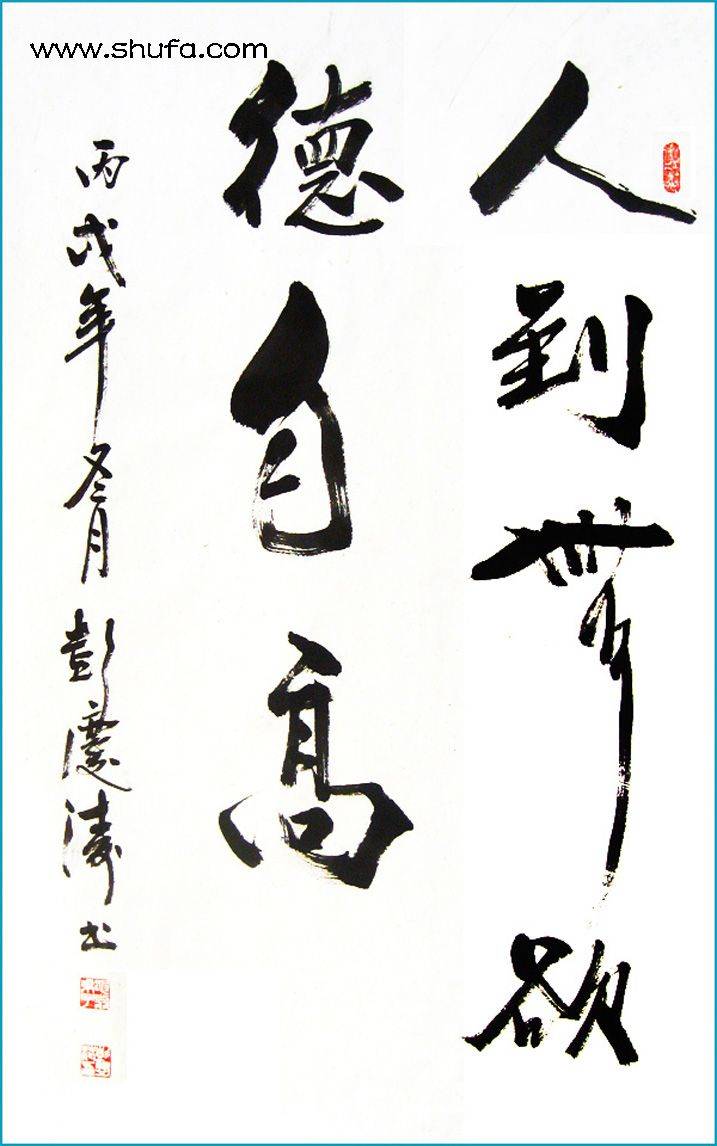 www.shufa.com
人到無欲
德自高
丙戌年冬月彭慶濤书